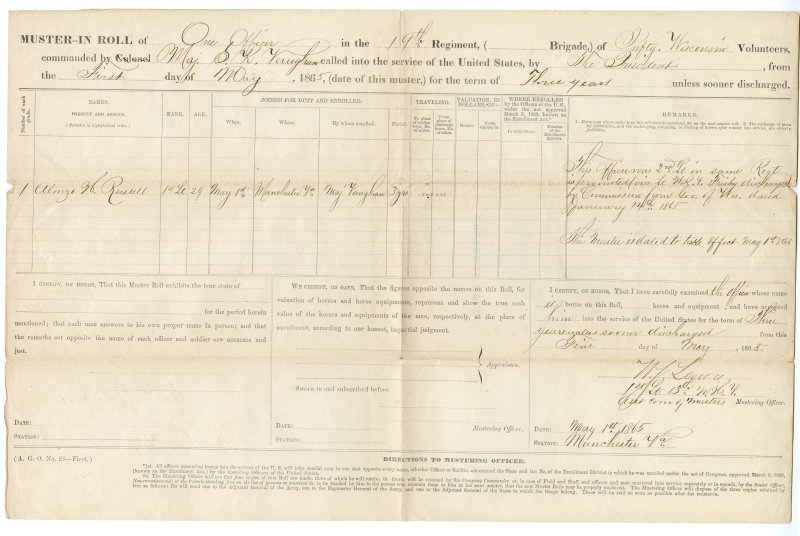 MUSTER-IN ROLL of One Officer in the 19th Regiment, ( Brigade,) of Infty. Wisconsin Volunteers,
commanded by Colonel Maj S. K. Vaughan called into the service of the United States, by The President , from
the First day of May , 1865, (date of this muster,) for the term of Three years unless sooner discharged.
Number of each grade.
NAMES.
PRESENT AND ABSENT.
(Privates in alphabetical order.)
RANK.
AGE.
JOINED FOR DUTY AND ENROLLED.
When.
Where.
By whom enrolled.
Period.
TRAVELING.
To place of rendezvous, No. of miles.
From place of discharge home, No. of miles.
VALUATION, IN DOLLARS, OF—
Horses.
Horse equipments.
WHERE ENROLLED
by the Officers of the U. S. under the act approved March 3, 1863, known as the Enrollment Act.*
In what State.
Number of the Enrollment District.
REMARKS.
1 Alonzo H. Russell 1st Lt 29 May 1st Manchester Va. Maj Vaughan 3 yrs none
This Officer was 2nd Lt in same Regt
is promoted vice Lt discharged
by Commission from Gov. of Wis. dated
January 14th 1865
This Muster is dated to take effect May 1st 1865
I CERTIFY, ON HONOR, That this Muster Roll exhibits the true state of
for the period herein
mentioned; that each man answers to his own proper name in person; and that
the remarks set opposite the name of each officer and soldier are accurate and
just.
DATE:
STATION:
WE CERTIFY, ON OATH, That the figures opposite the names on this Roll, for
valuation of horses and horse equipments, represent and show the true cash
value of the horses and equipments of the men, respectively, at the place of
enrollment, according to our honest, impartial judgment.
Appraisers.
Sworn to and subscribed before
Mustering Officer.
DATE:
STATION:
I CERTIFY, ON HONOR, That I have carefully examined the officer whose name
is borne on this Roll, horse and equipment and have accepted
him into the service of the United States for the term of Three
years unless sooner discharged from this
First day of May , 1865.
1st Lt 13th N. H. V.
Asst Com of Musters Mustering Officer.
DATE: May 1st 1865
STATION: Manchester Va
(A. G. O. No. 21—First.)
DIRECTIONS TO MUSTERING OFFICER.